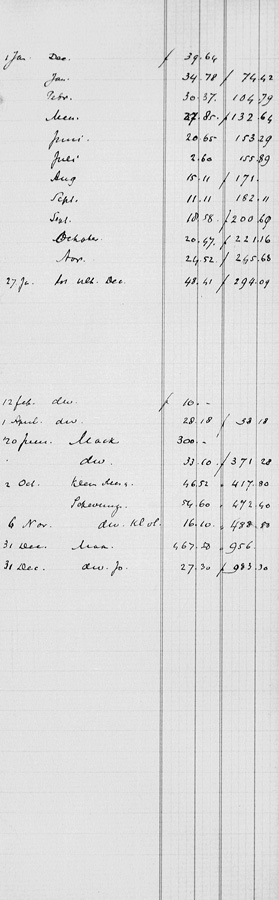 1 Jan. Dec. ƒ 39.64
Jan. 34.78 ƒ 74.42
Febr. 30.37. 104.79
Mrt. 27.85. ƒ 132.64
Juni. 20.65 153.29
Juli 2.60 155.89
Aug 15.11 ƒ 171.
Sept. 11.11 182.11
Sept. 18.58. ƒ 200.69
October 20.47. ƒ 221.16
Nov. 24.52 ƒ 245.68
27 Ja. Dec. 48.41 ƒ 294.09
12 feb. div. ƒ 10.-
1 April. div. 28.18 ƒ 38.18
20 juni. Mack 300.-
div. 33.10 ƒ 371.28
2 Oct. 46.52 417.80
54.60 472.40
6 Nov. div. Kl. vl. 16.10. 488.50
31 Dec. 467.50 956.
31 Dec. div. Jo. 27.30 ƒ 983.30